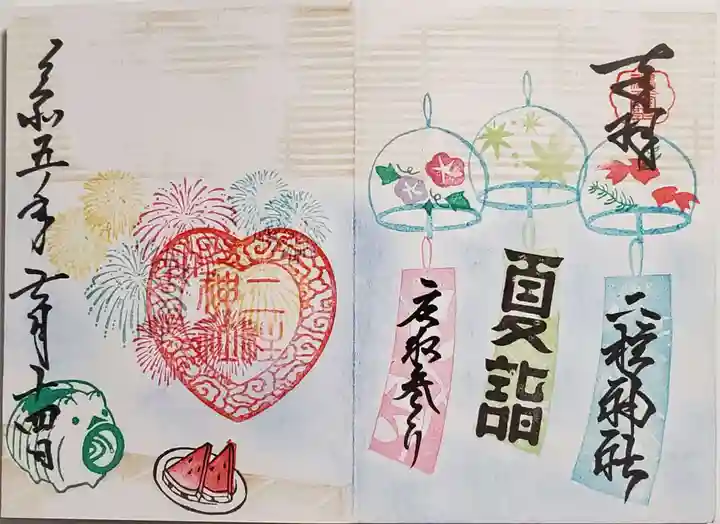 奉拝
二柱神社
夏詣
参り
二柱
神社
令和五年七月十四日